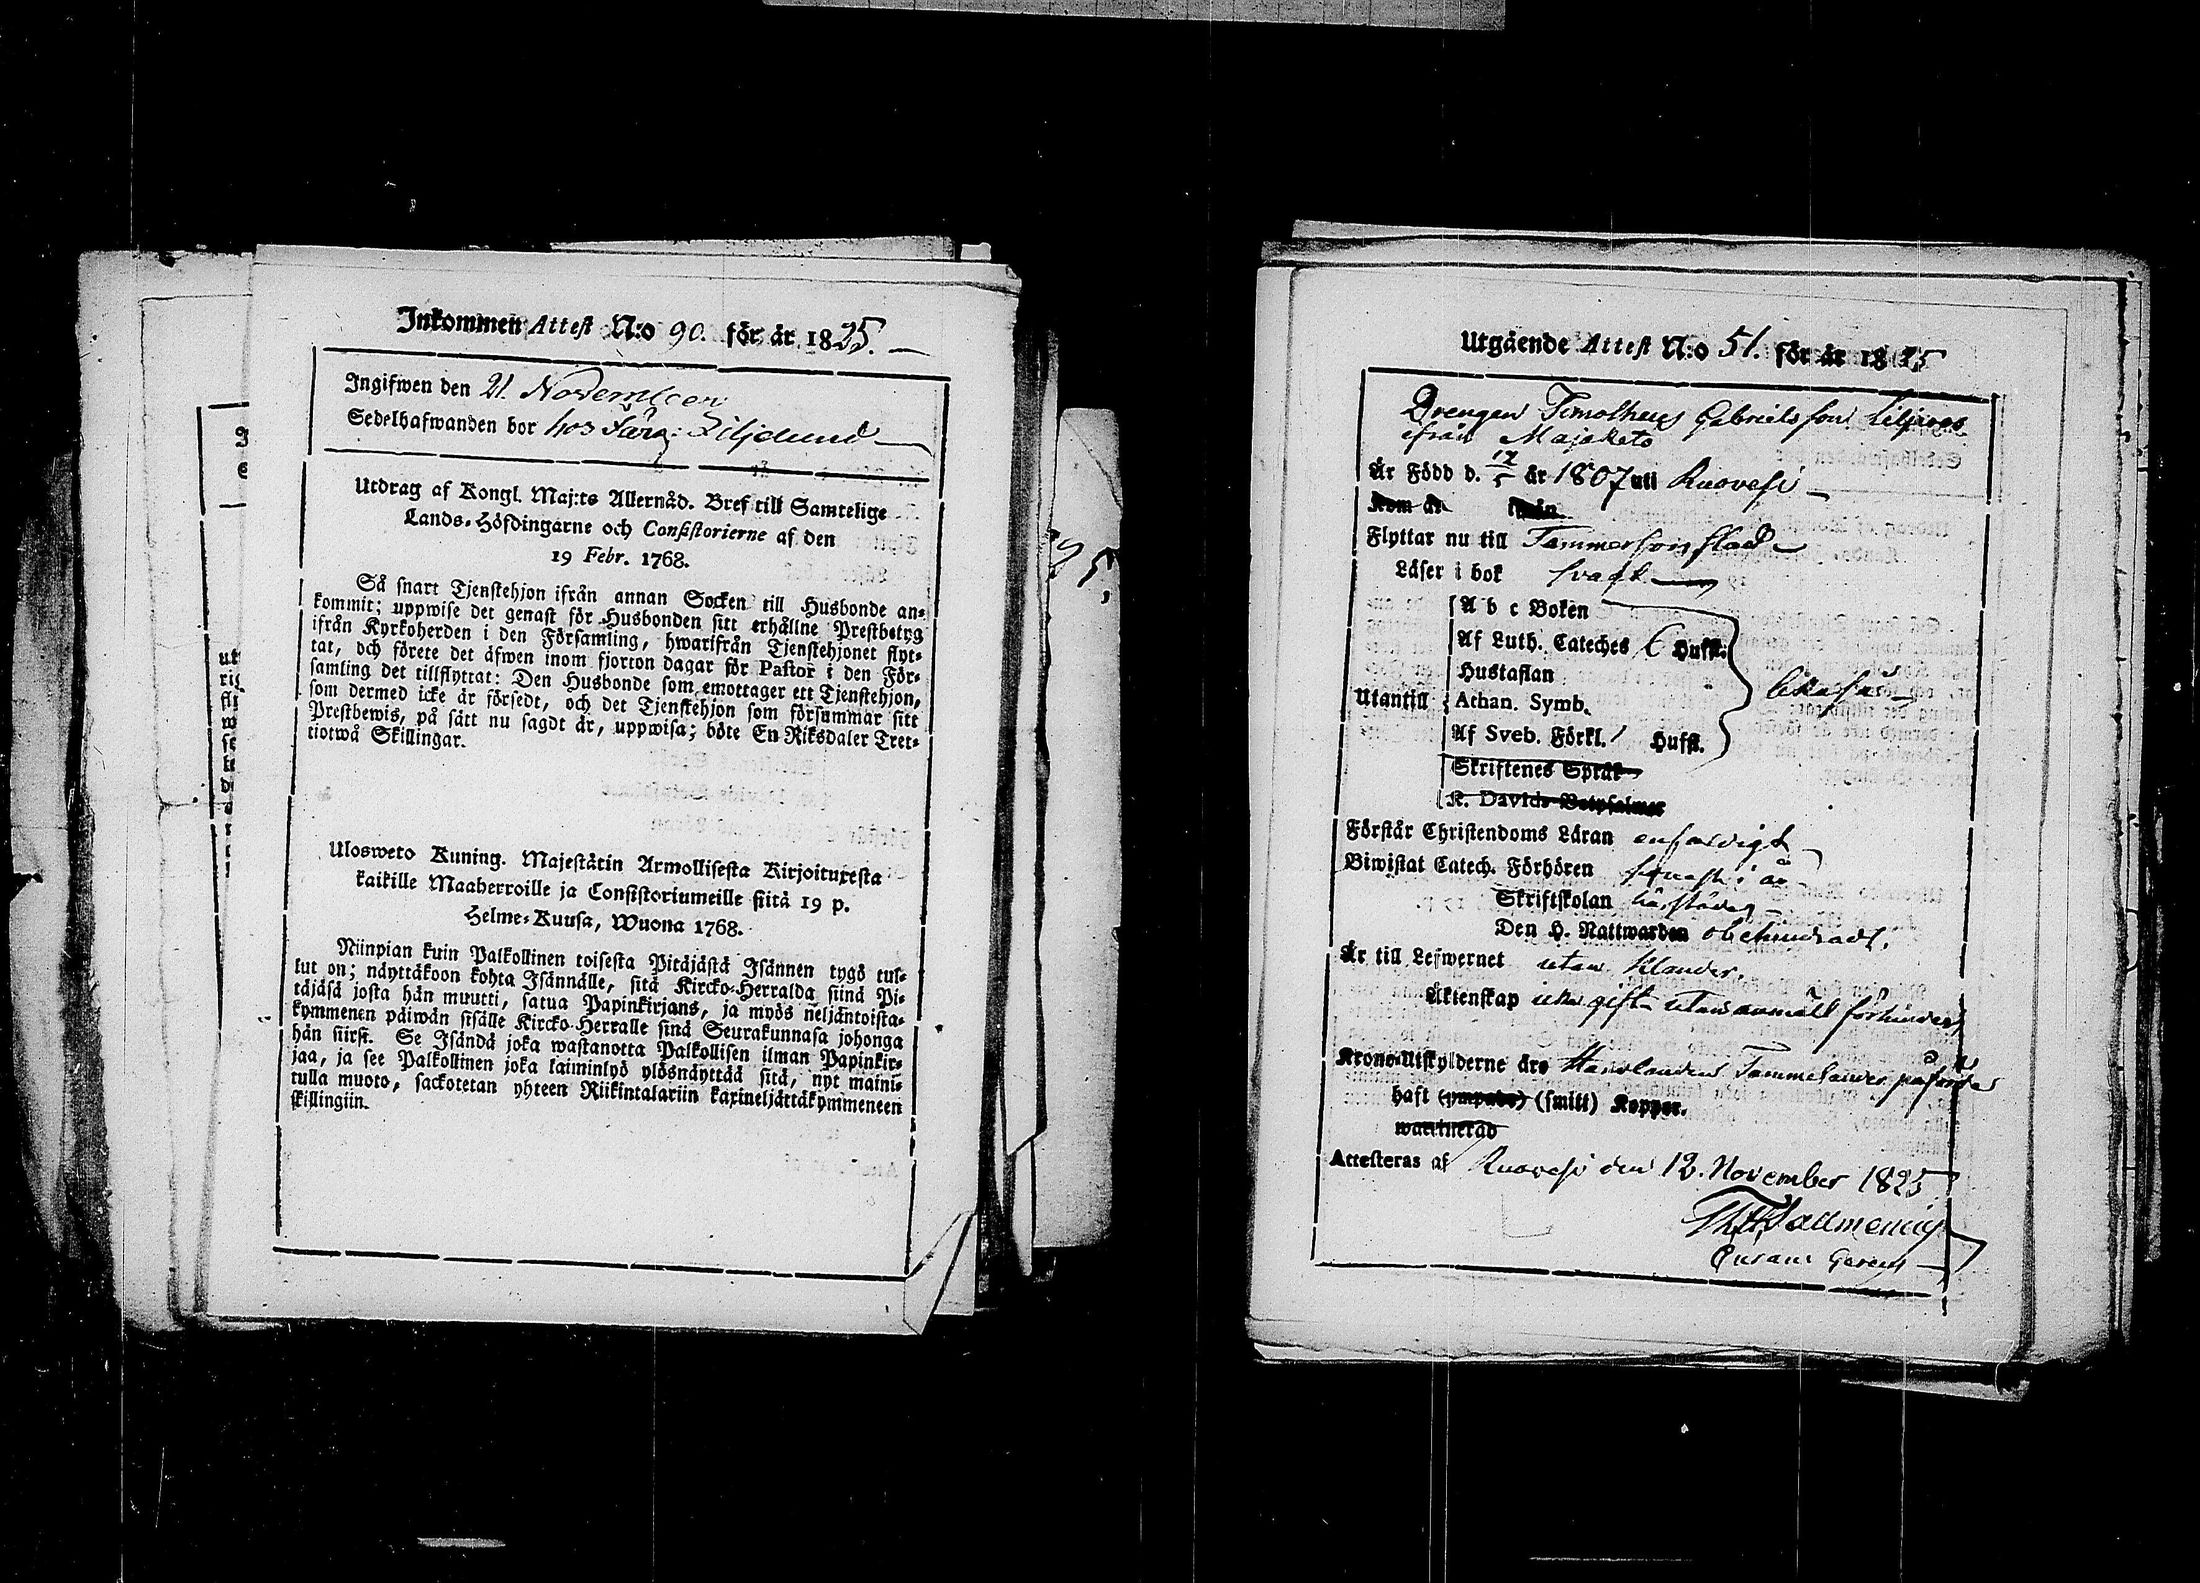 Inkommen Attest N:o 90. för år 1825.
Ingifwen den 21. November
Sedelhafwanden bor hos Färg: Liljelund
Utdrag af Kongl. Maj:ts Allernåd. Bref till Samtelige
Lands-Höfdingarne och Consistorierne af den
19 Febr. 1768.
Så snart Tjenstehjon ifrån annan Socken till Husbonde an-
kommit; uppwise det genast för Husbonden sitt erhållne Prestbetyg
ifrån Kyrkoherden i den Församling, hwarifrån Tjenstehjonet flyt-
tat, och förete det äfwen inom fjorton dagar för Pastor i den För-
samling det tillflyttat: Den Husbonde som emottager ett Tjenstehjon,
som dermed icke är försedt, och det Tjenstehjon som försummar sitt
Prestbewis, på sätt nu sagdt är, uppwisa; böte En Riksdaler Tret-
tiotwå Skillingar.
Ulosweto Kuning. Majestätin Armollisesta Kirjoituxesta
kaikille Maaherroille ja Consistoriumeille siitä 19 p.
Helme-Kuusa, Wuona 1768.
Niinpian kuin Palkollinen toisesta Pitäjästä Isännen tygö tul-
lut on; näyttäkoon kohta Isännälle, sitä Kircko-Herralda siinä Pi-
täjäsä josta hän muutti, satua Papinkirjans, ja myös neljäntoista-
kymmenen päiwän sisälle Kircko-Herralle sinä Seurakunnasa johonga
hän siirst. Se Isändä joka wastanotta Palkollisen ilman Papinkir-
jaa, ja see Palkollinen joka laiminlyö ylösnäyttää sitä, nyt maini-
tulla muoto, sackotetan yhteen Riikintalariin kaxineljättäkymmeneen
skillingiin.
Utgående Attest N:o 51. för år 1825
Drengen Timotheus Gabrielsson Liljroos
ifrån Majaketo
Är Född d. 17/5 år 1807 uti Ruovesi
Kom år ifrån
Flyttar nu till Tammerfors stad
Läser i bok svagt
A b c Boken
Af Luth. Cateches 6 Hufst.
Hustaflan
Utantill Athan. Symb.
Af Sveb. Förkl. Hufst.
Skriftenes Språk
K. Davids Botpsalmer
Förstår Christendoms Läran enfaldigt
Biwistat Catech. Förhören senast i år
Skriftskolan härstädes
Den H. Nattwarden obehindradt.
Är till Lefwernet utan klander.
Äktenskap icke gift utan anmält förhinder
Krono-Utskylderne äro
haft (ympade) (smitt) Koppor.
warit
Attesteras af Ruovesi den 12. November 1825
Th. H. Tallmenius
Curam Gerens